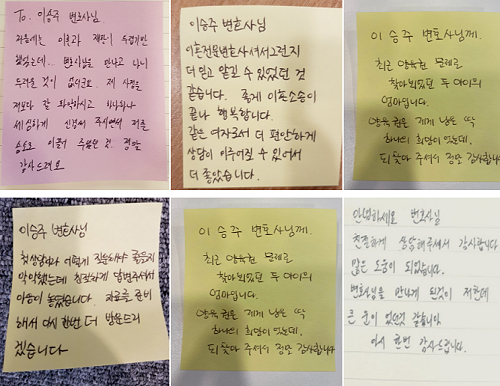 To. 이승주 변호사님
처음에는 이혼과 재판이 두렵기만
했었는데... 변호사님을 만나고 나니
두려울 것이 없더군요. 제 사정을
저보다 잘 파악하시고
세심하게 신경써 주시면서 저를
승소로 이끌어 주셨던 것 정말
감사드려요
이승주 변호사님
이혼전문변호사셔서 그런지
더 믿고 맡길 수 있었던 것
같습니다. 좋게 이혼소송이
끝나 행복합니다.
같은 여자로서 더 편안하게
상담이 이루어질 수 있어서
더 좋았습니다.
이 승주 변호사님께.
최근 양육권 문제로
찾아뵈었던 두 아이의
엄마입니다.
양육권은 제게 남은 딱
하나의 희망이었는데.
되찾아 주셔서 정말 감사합니다
이승주 변호사님
첫상담이라 어떻게 질문해야 할지
막막했는데 친절하게 답변주셔서
마음이 놓였습니다. 자료를 준비
해서 다시 한번 더 방문드리
겠습니다
이 승주 변호사님께.
최근 양육권 문제로
찾아뵈었던 두 아이의
엄마입니다.
양육권은 제게 남은 딱
하나의 희망이었는데.
되찾아 주셔서 정말 감사합니다
안녕하세요 변호사님
친절하게 상담해주셔서 감사합니다
많은 도움이 되었습니다.
변호사님을 만나게 된것이 저한테
큰 운이 었던것 같습니다.
다시 한번 감사드립니다.